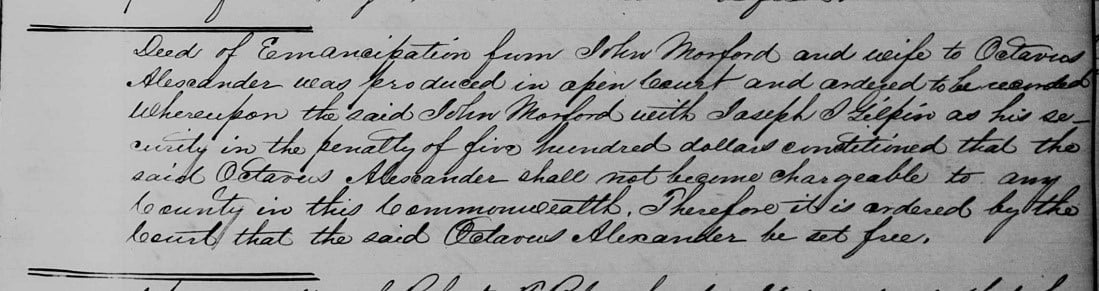 Deed of Emancipation from John Morford and wife to Octavus
Alexander was produced in open Court and ordered to be recorded
Whereupon the said John Morford with Joseph J Gilpin as his se-
curity in the penalty of five hundred dollars conditioned that the
said Octavus Alexander shall not become chargeable to any
County in this Commonwealth. Therefore it is ordered by the
Court that the said Octavus Alexander be set free.